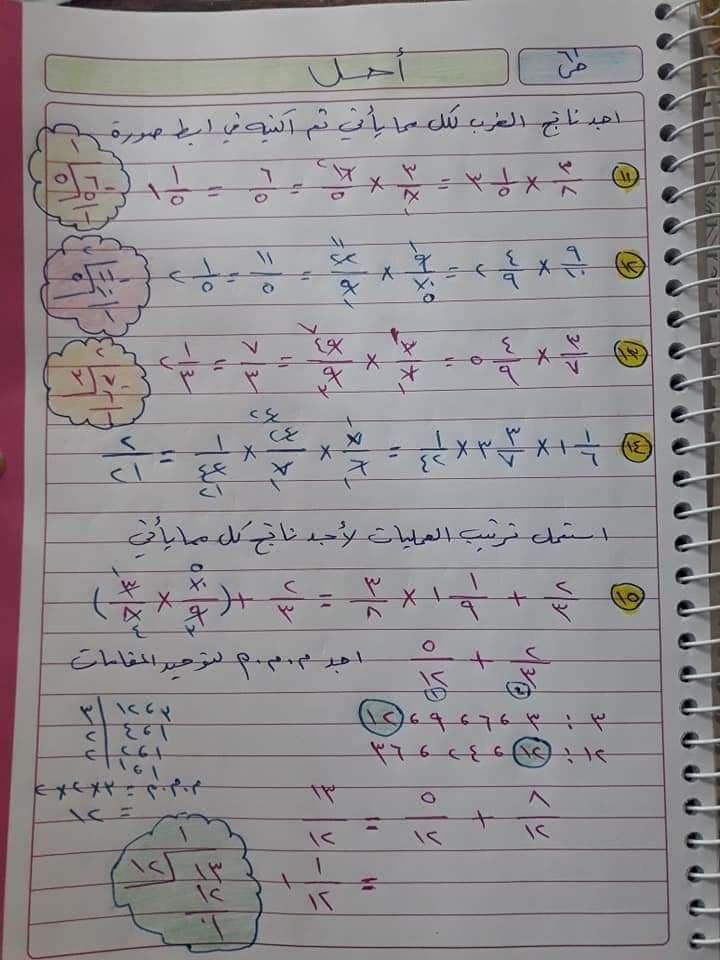 ص٦١ أحل
اجد ناتج الضرب لكل مما يأتي ثم اكتبه في ابسط صورة
١١ ٣/٨ × ٣ ١/٥ = ٣/٨ × ١٦/٥ = ٦/٥ = ١ ١/٥
١٢ ٩/١٠ × ٢ ٤/٩ = ٩/١٠ × ٢٢/٩ = ١١/٥ = ٢ ١/٥
١٣ ٣/٧ × ٥ ٤/٩ = ٣/٧ × ٤٩/٩ = ٧/٣ = ٢ ١/٣
١٤ ١ ١/٦ × ٣ ٣/٧ × ١/٤٢ = ٧/٦ × ٢٤/٧ × ١/٤٢ = ٢/٢١
استعمل ترتيب العمليات لأجد ناتج كل مما يأتي
١٥ ٢/٣ + ١ ١/٩ × ٣/٨ = ٢/٣ + (١٠/٩ × ٣/٨)
٢/٣ + ٥/١٢ اجد م.م.م لتوحيد المقامات
٣ : ٣ و ٦ و ٩ و ١٢
١٢ : ١٢ و ٢٤ و ٣٦
٣ و ١٢ | ٣
١ و ٤ | ٢
١ و ٢ | ٢
١ و ١
م.م.م = ٣×٢×٢
= ١٢
٨/١٢ + ٥/١٢ = ١٣/١٢
= ١ ١/١٢